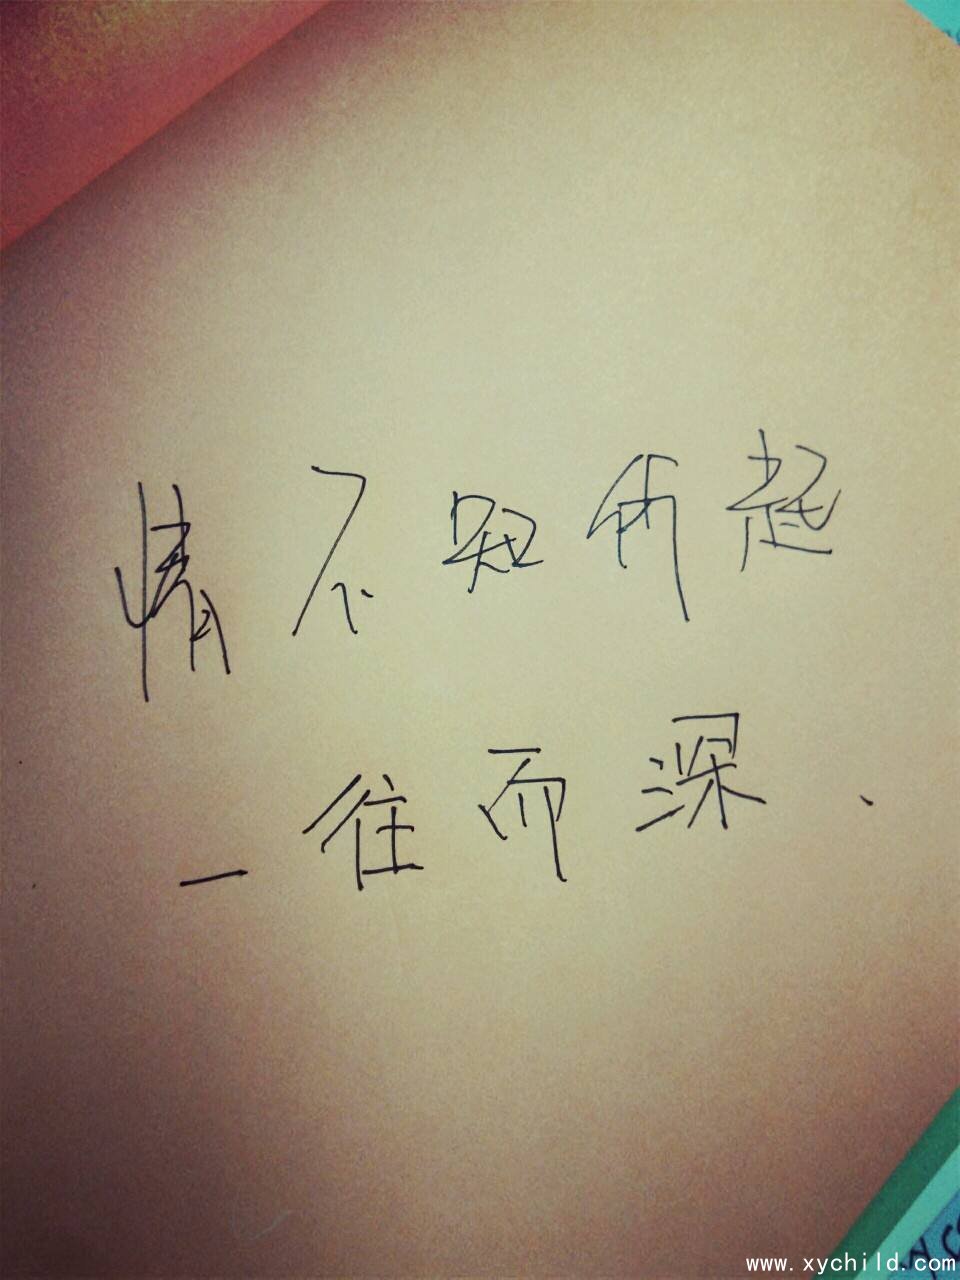 情不知所起
一往而深.
www.xychild.com